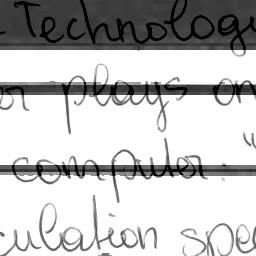 - Technology
er plays on
computer. "
culation spe